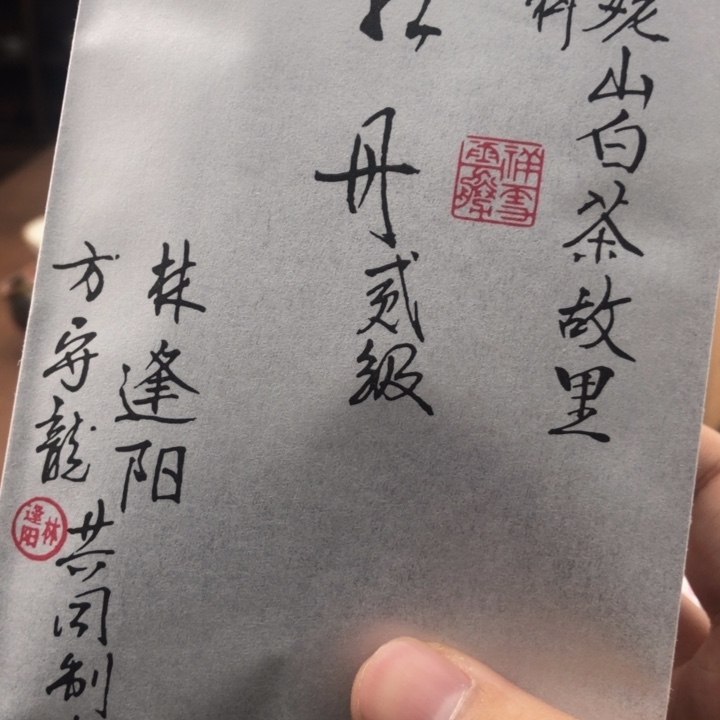 姥山白茶故里
丹貳級
林逢阳
方守龍
共同制
林逢阳